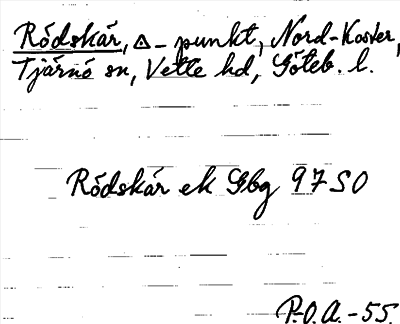 Rödskär, △-punkt, Nord-Koster,
Tjärnö sn, Vette hd, Göteb. l.
Rödskär ek Gbg 97 SO
P.O.A.-55.